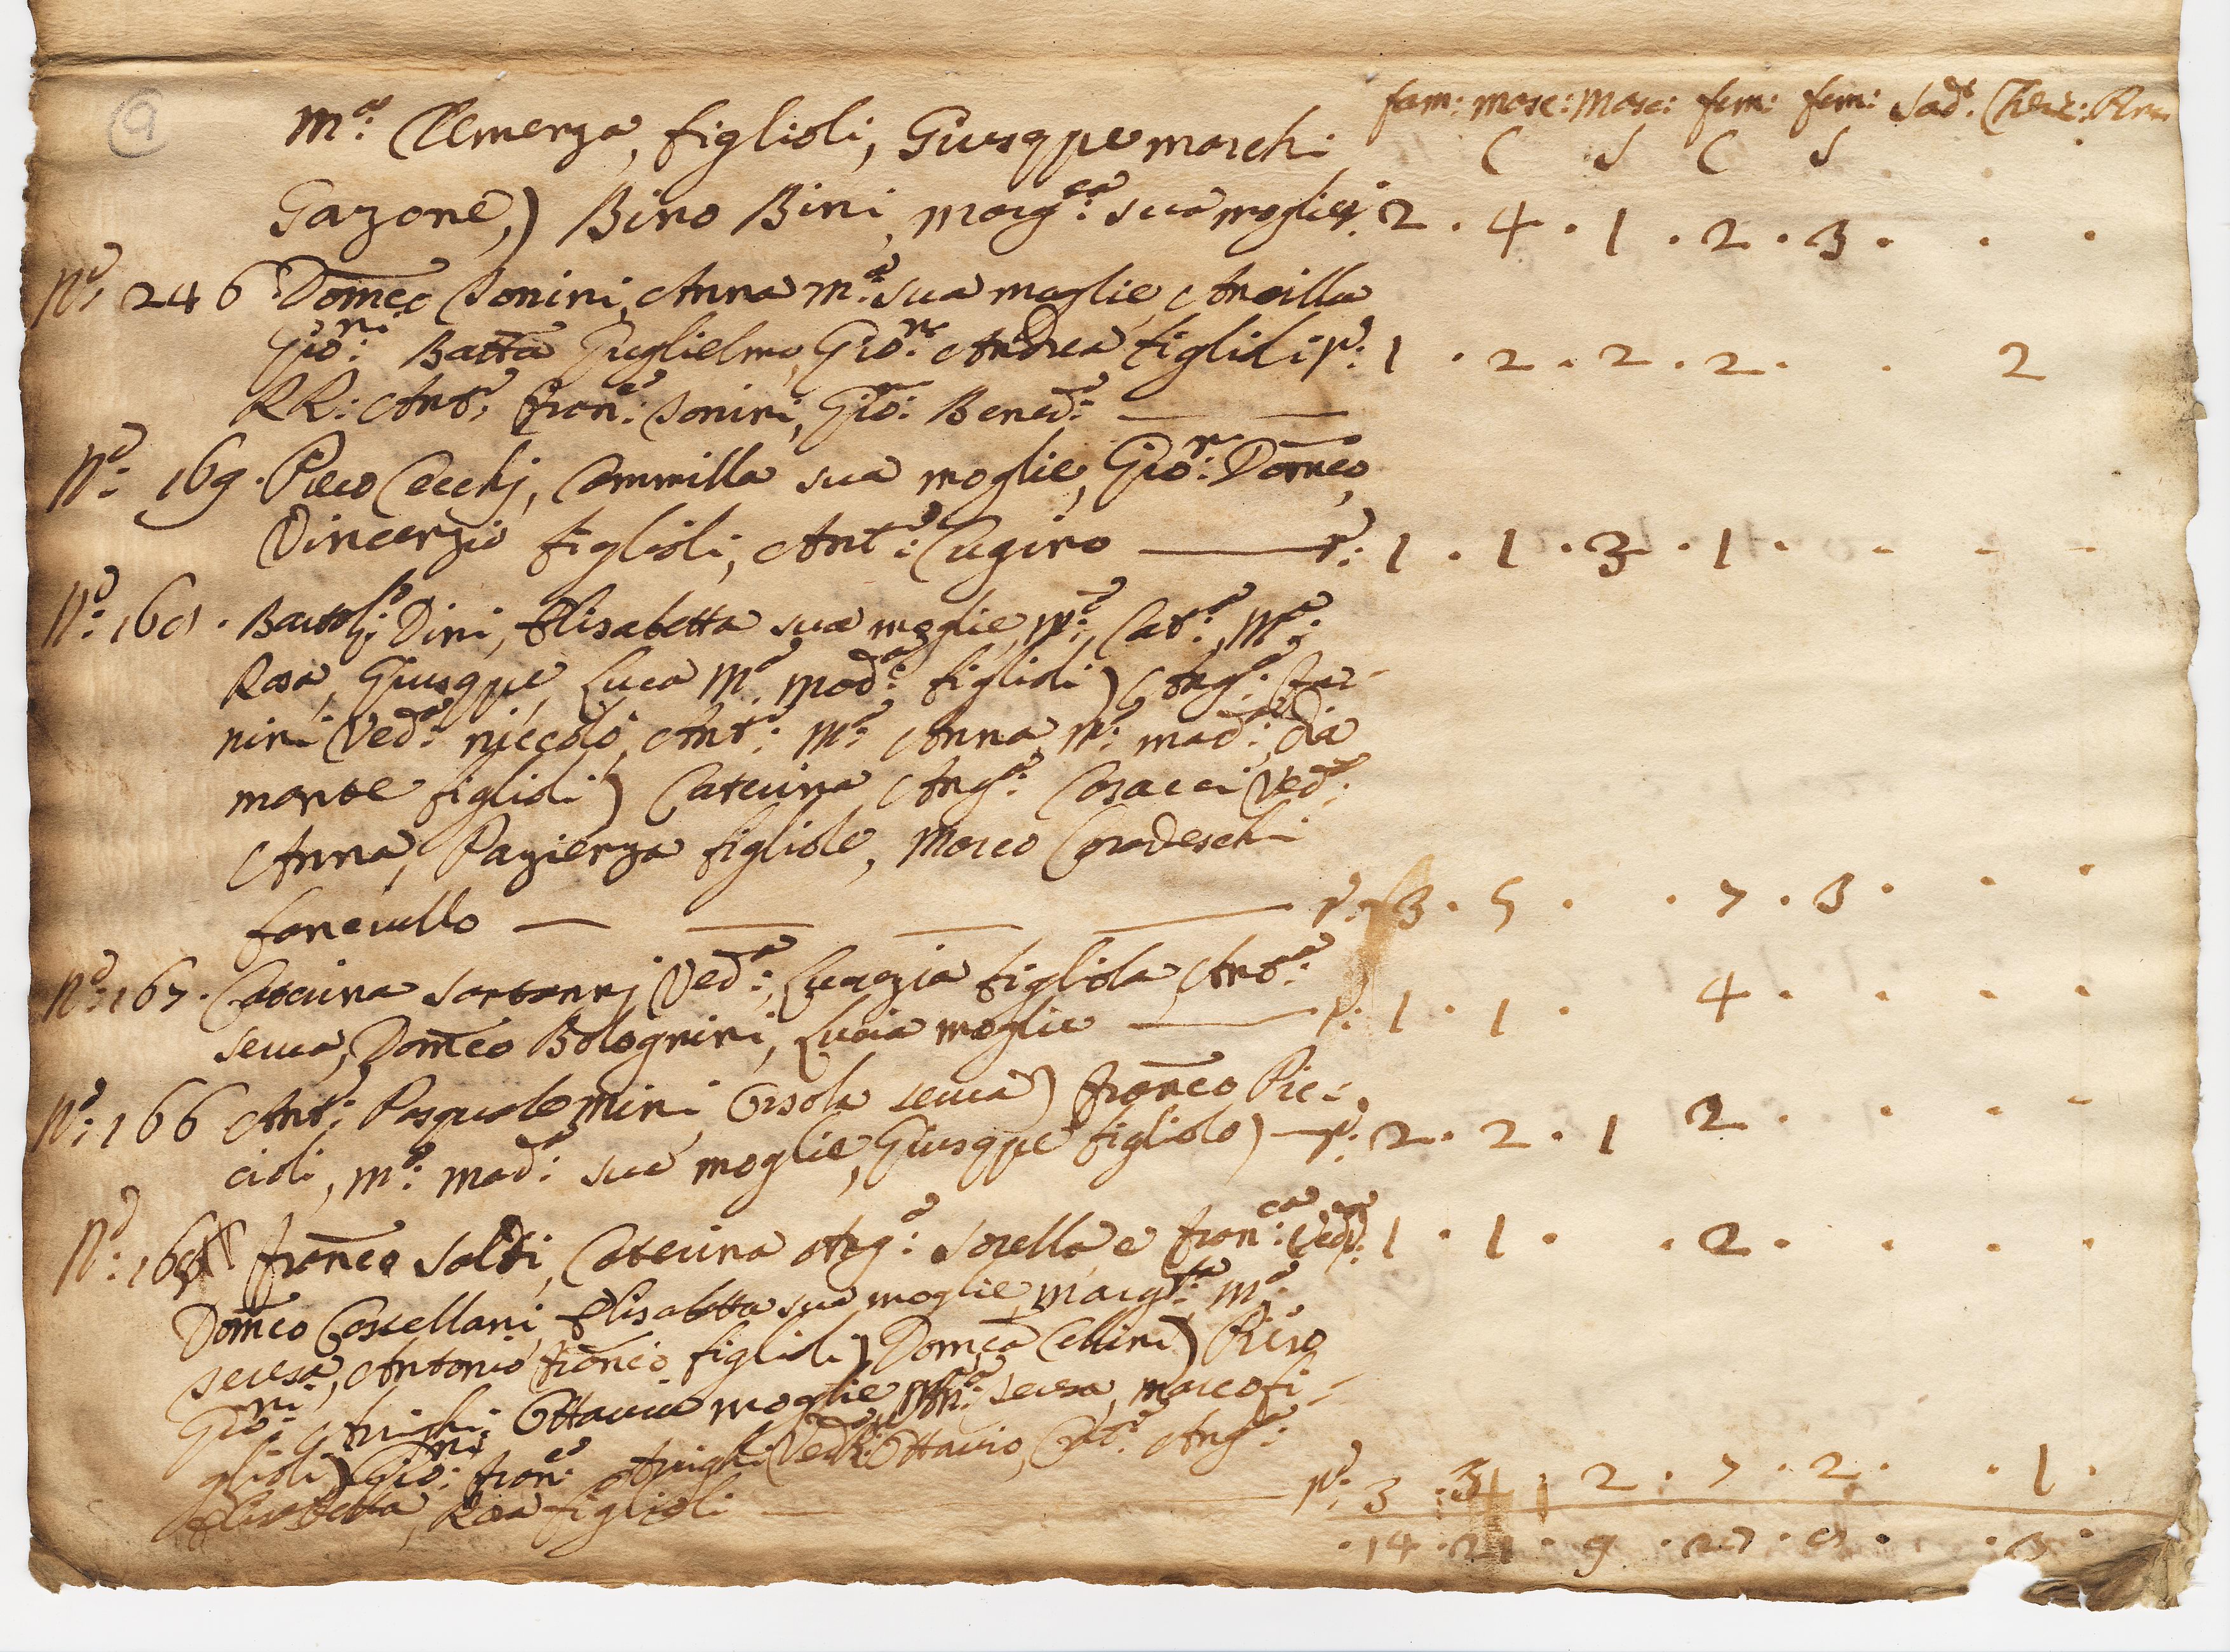 9
fam: masc: Masc: fem: fem: Sad: Cher:
C S C S
M.ª Clemenza, figlioli, Giuseppe Marchi
Gazone,) Bino Bini, Marg.ta sua moglie, 2 . 4 . 1 . 2 . 3 .
N.º 246 Domẽco Sonini, Anna M.ª sua moglie, Ancilla
Gio:ni Batta Guglielmo, Gio:ni Andrea figlioli p: 1 . 2 . 2 . 2 . . 2
RR: Ant.º Fran:co Sonini, Gio: Bened.º
N.º 169 . Piero Cecchj, Cammilla sua moglie, Gio:ni Domẽco,
Vincenzio figlioli, Ant.º Cugino p: 1 . 1 . 3 . 1 .
N.º 168 . Bartol.º Dini, Elisabetta sua moglie, M.ª Cat.ª, M.ª
Rosa, Giuseppe, Luca M.ª Mad.ª figlioli) Ang.ª
nini Ved.ª Niccolò, Ant.º M.ª Anna M.ª Mad.ª, Dia
mante figlioli) Caterina Ang.ª Casacci Ved.ª
Anna, Pazienza figliole, Marco Coradeschi
fanciullo p: 3 . 5 . . 7 . 3 .
N.º 167 . Caterina Sartonnj Ved.ª, Lucrezia figliola, Ant.ª
serva, Domẽco Bolognini, Lucia moglie p: 1 . 1 . 4 .
N.º 166 Ant.º Pasqualemini, Orsola serva) Franẽco Pic-
cioli, M.ª Mad.ª sua moglie, Giuseppe figliolo) p: 2 . 2 . 1 2 .
N.º 165 Franẽco Saldi, Caterina Ang.ª Sorella, e Fran:ca Ved.ª p: 1 . 1 . . 2 .
Domẽco Castellani, Elisabetta sua moglie, Marg.ta M.ª
Teresa, Antonio Franẽco figlioli) Domẽca Cellini) Piero
Gio:ni Arrighi Ottavia moglie, M.ª Teresa, Marco fi-
glioli) Gio:ni Fran:co Arrighi Ved.º Ottavio, Cat.ª Ang.ª
Elisabetta, Rosa figlioli p: 3 . 2 . 7 . 2 . . 1 .
. 14 . 21 . 9 . 27 . 8 . . 3 .